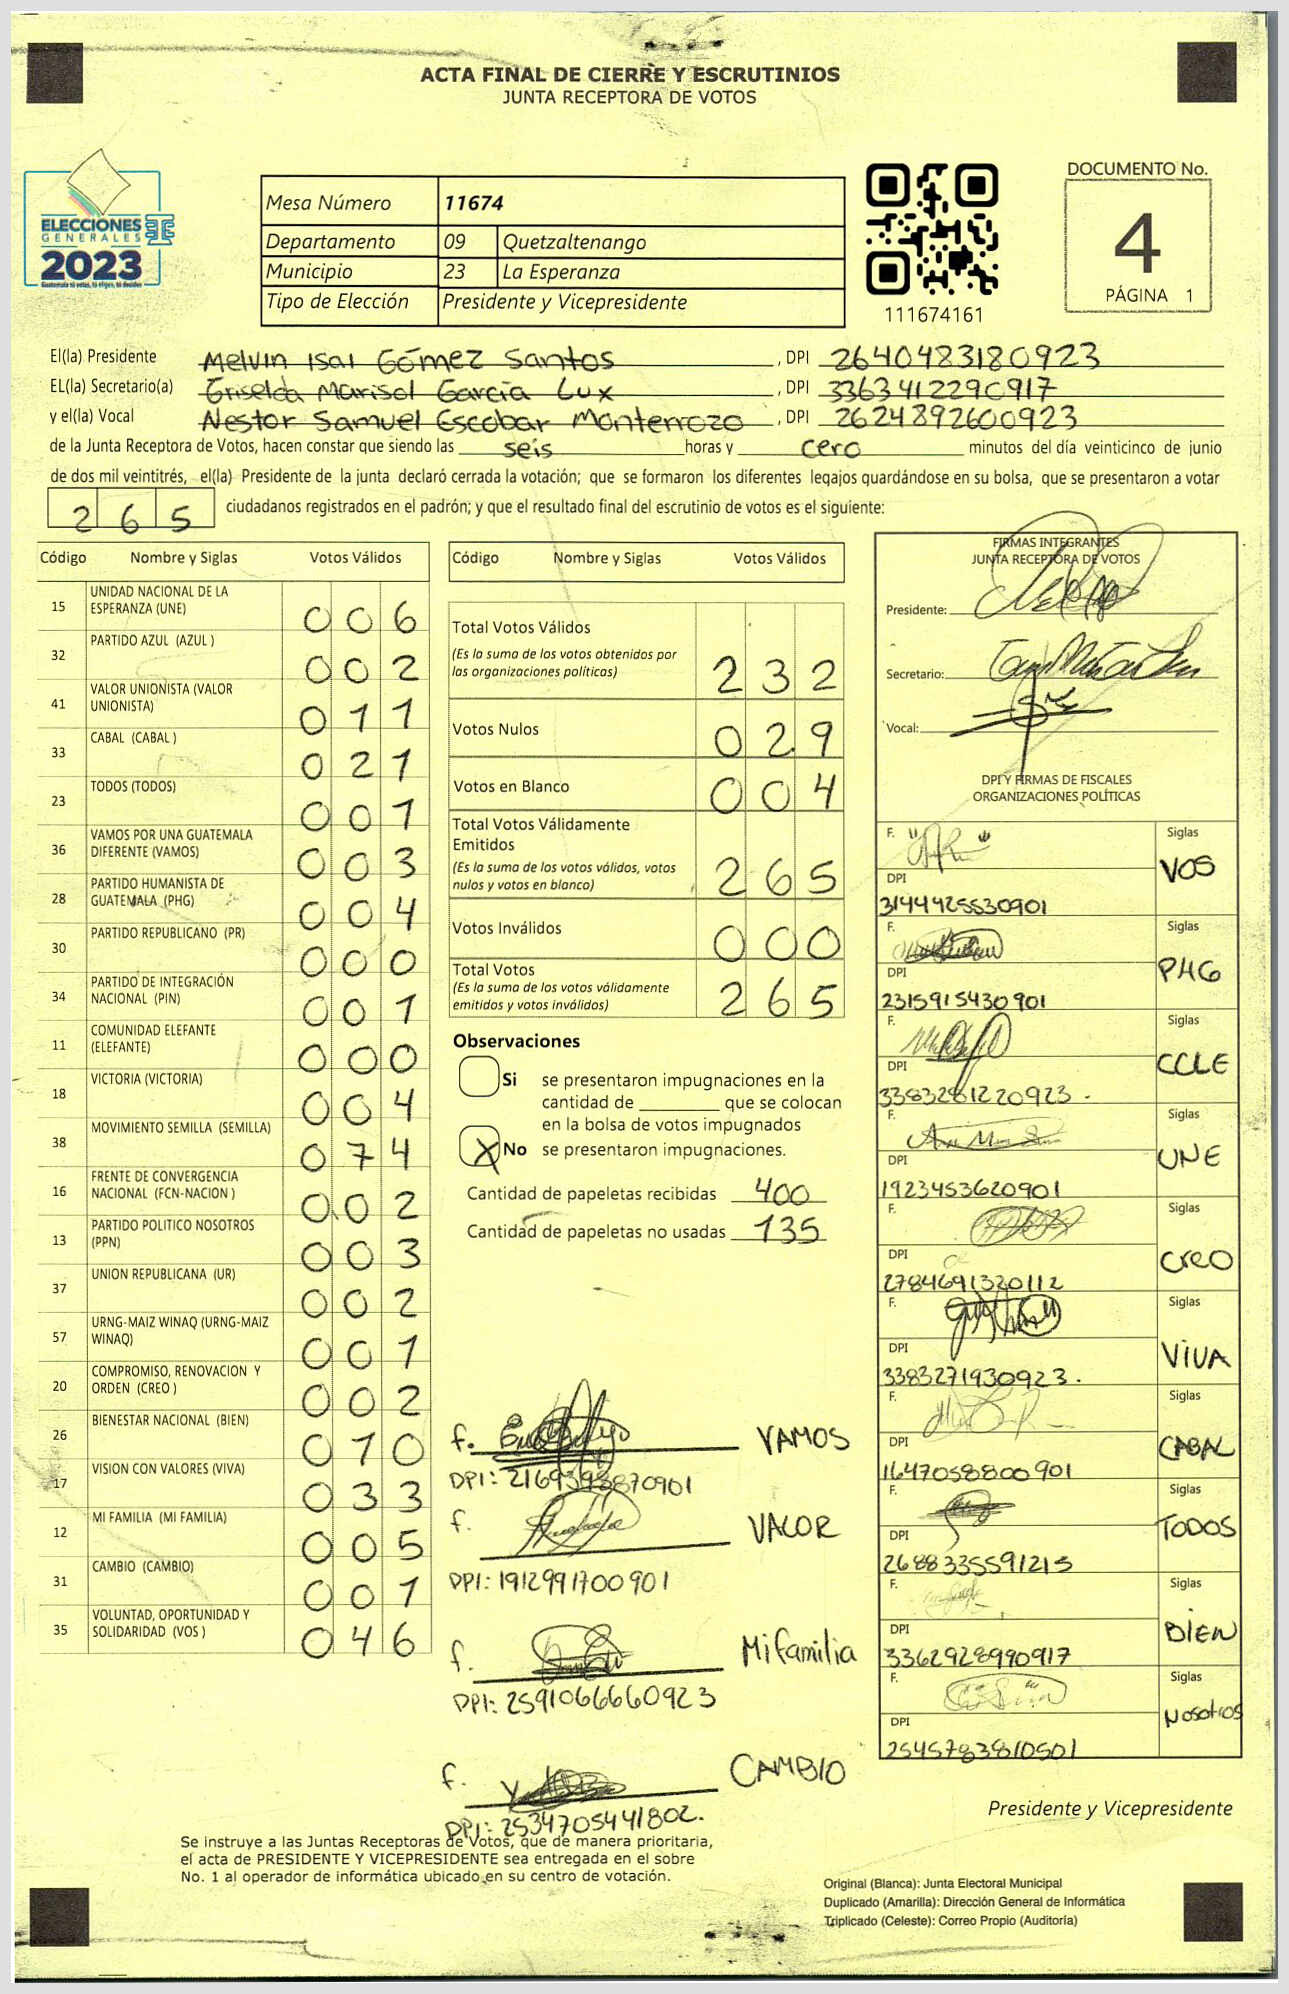 ACTA FINAL DE CIERRE Y ESCRUTINIOS
JUNTA RECEPTORA DE VOTOS
ELECCIONES
GENERALES
2023
Guatemala tú votas, tú eliges, tú decides
Mesa Número 11674
Departamento 09 Quetzaltenango
Municipio 23 La Esperanza
Tipo de Elección Presidente y Vicepresidente
111674161
DOCUMENTO No.
4
PÁGINA 1
El(la) Presidente Melvin Isaí Gómez Santos, DPI 2640483180923
EL(la) Secretario(a) Griselda Marisol García Lux, DPI 3363412290917
y el(la) Vocal Nestor Samuel Escobar Monterrozo, DPI 2624892600923
de la Junta Receptora de Votos, hacen constar que siendo las seis horas y cero minutos del día veinticinco de junio
de dos mil veintitrés, el(la) Presidente de la junta declaró cerrada la votación; que se formaron los diferentes legajos guardándose en su bolsa, que se presentaron a votar
265 ciudadanos registrados en el padrón; y que el resultado final del escrutinio de votos es el siguiente:
Código Nombre y Siglas Votos Válidos
15 UNIDAD NACIONAL DE LA ESPERANZA (UNE) 006
32 PARTIDO AZUL (AZUL ) 002
41 VALOR UNIONISTA (VALOR UNIONISTA) 011
33 CABAL (CABAL ) 021
23 TODOS (TODOS) 001
36 VAMOS POR UNA GUATEMALA DIFERENTE (VAMOS) 003
28 PARTIDO HUMANISTA DE GUATEMALA (PHG) 004
30 PARTIDO REPUBLICANO (PR) 000
34 PARTIDO DE INTEGRACIÓN NACIONAL (PIN) 001
11 COMUNIDAD ELEFANTE (ELEFANTE) 000
18 VICTORIA (VICTORIA) 004
38 MOVIMIENTO SEMILLA (SEMILLA) 074
16 FRENTE DE CONVERGENCIA NACIONAL (FCN-NACION ) 002
13 PARTIDO POLITICO NOSOTROS (PPN) 003
37 UNION REPUBLICANA (UR) 002
57 URNG-MAIZ WINAQ (URNG-MAIZ WINAQ) 001
20 COMPROMISO, RENOVACION Y ORDEN (CREO ) 002
26 BIENESTAR NACIONAL (BIEN) 010
17 VISION CON VALORES (VIVA) 033
12 MI FAMILIA (MI FAMILIA) 005
31 CAMBIO (CAMBIO) 001
35 VOLUNTAD, OPORTUNIDAD Y SOLIDARIDAD (VOS ) 046
Código Nombre y Siglas Votos Válidos
Total Votos Válidos
(Es la suma de los votos obtenidos por
las organizaciones políticas) 232
Votos Nulos 029
Votos en Blanco 004
Total Votos Válidamente
Emitidos
(Es la suma de los votos válidos, votos
nulos y votos en blanco) 265
Votos Inválidos 000
Total Votos
(Es la suma de los votos válidamente
emitidos y votos inválidos) 265
Observaciones
Si se presentaron impugnaciones en la
cantidad de ________ que se colocan
en la bolsa de votos impugnados
X No se presentaron impugnaciones.
Cantidad de papeletas recibidas 400
Cantidad de papeletas no usadas 135
f. VAMOS
DPI: 2169398870901
f. VALOR
DPI: 1912991700901
f. Mi familia
DPI: 2591066660923
f. CAMBIO
DPI: 2534705441802.
FIRMAS INTEGRANTES
JUNTA RECEPTORA DE VOTOS
Presidente:
Secretario:
Vocal:
DPI Y FIRMAS DE FISCALES
ORGANIZACIONES POLÍTICAS
F. Siglas
VOS
DPI
3144425530901
F. Siglas
PHG
DPI
2315915430901
F. Siglas
CCLE
DPI
3383281220923.
F. Siglas
UNE
DPI
1923453620901
F. Siglas
CREO
DPI
2784691320112
F. Siglas
VIVA
DPI
3383271930923.
F. Siglas
CABAL
DPI
1647058800901
F. Siglas
TODOS
DPI
2688335591213
F. Siglas
BIEN
DPI
3362928990917
F. Siglas
Nosotros
DPI
2545783810501
Presidente y Vicepresidente
Se instruye a las Juntas Receptoras de Votos, que de manera prioritaria,
el acta de PRESIDENTE Y VICEPRESIDENTE sea entregada en el sobre
No. 1 al operador de informática ubicado en su centro de votación.
Original (Blanca): Junta Electoral Municipal
Duplicado (Amarilla): Dirección General de Informática
Triplicado (Celeste): Correo Propio (Auditoría)